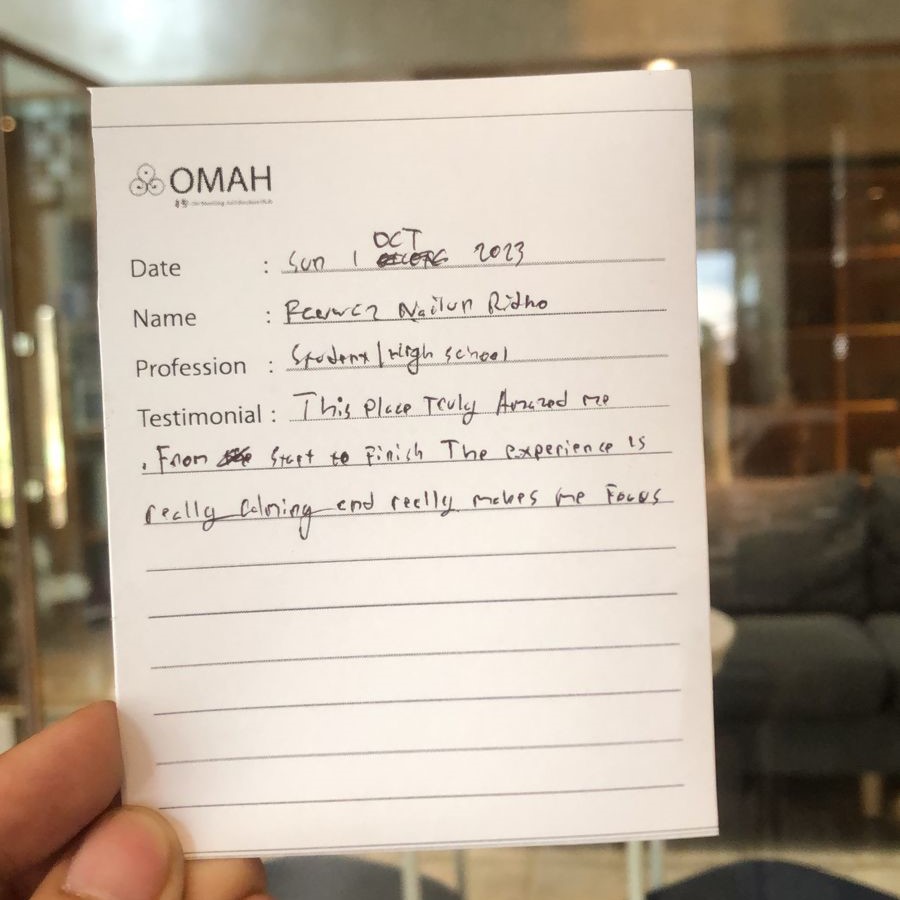 OMAH
Date : Sun 1 OCT 2023
Name : Nailun Ridho
Profession : Student/High school
Testimonial : This place Truly Amazed me
. From start to Finish The experience is
really Calming and really makes me Focus